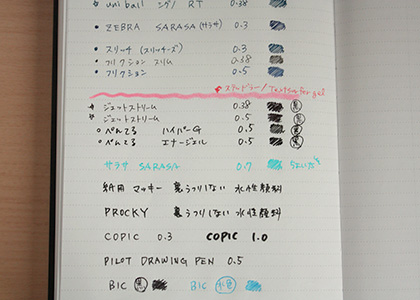 uni ball シグノ RT 0.38
ZEBRA SARASA (サラサ) 0.3
スリッチ (スリッチーズ) 0.3
フリクション スリム 0.38
フリクション 0.5
ジェットストリーム 0.38 黒
ジェットストリーム 0.5 黒
ぺんてる ハイパーG 0.5
ぺんてる エナージェル 0.5
サラサ SARASA 0.7
マッキー 裏うつりしない 水性顔料
PROCKY 裏うつりしない 水性顔料
COPIC 0.3 COPIC 1.0
PILOT DRAWING PEN 0.5
BIC 黒 BIC 水色